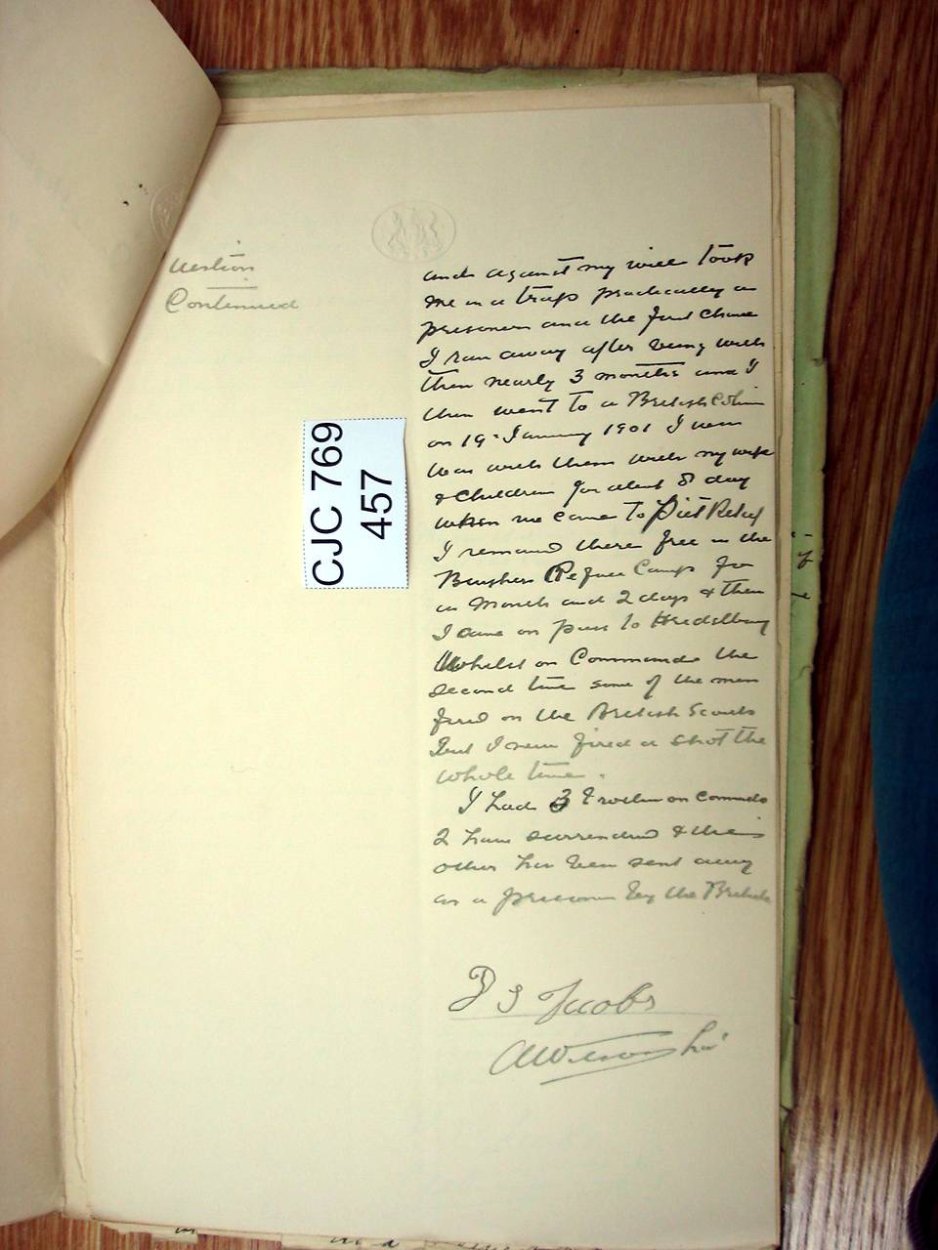 uestion
Continued
CJC 769
457
and against my will took
me in a trap practically a
prisoner and the first chance
I ran away after being with
them nearly 3 months and I
then went to a British Colum
on 19 January 1901 I
was with them with my wife
& Children for about 8 day
when we came to Piet Retief
I remained there free in the
Burghers Refugee Camp for
a Month and 2 days & then
I came on pass to Heidelberg
Whilst on Commando the
second time some of the men
fired on the British Scouts
But I never fired a shot the
whole time.
I had 3 Brothers on Commdo
2 have surrendered & the
other has been sent away
as a prisoner by the British
Jacobs